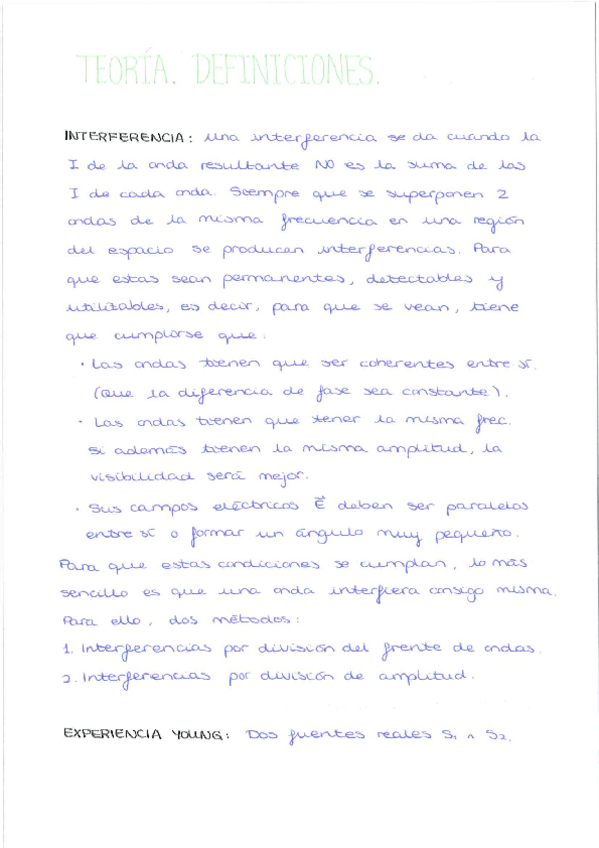 TEORÍA. DEFINICIONES.
INTERFERENCIA: una interferencia se da cuando la
I de la onda resultante NO es la suma de las
I de cada onda. Siempre que se superponen 2
ondas de la misma frecuencia en una región
del espacio se producen interferencias. Para
que estas sean permanentes, detectables y
utilitables, es decir, para que se vean, tiene
que cumplirse que:
· Las ondas tienen que ser coherentes entre sí.
(Que la diferencia de fase sea constante).
· Las ondas tienen que tener la misma frec.
Si además tienen la misma amplitud, la
visibilidad será mejor.
· Sus campos eléctricos E⃗ deben ser paralelos
entre sí o formar un ángulo muy pequeño.
Para que estas condiciones se cumplan, lo más
sencillo es que una onda interfiera consigo misma.
Para ello, dos métodos:
1. Interferencias por división del frente de ondas.
2. Interferencias por división de amplitud.
EXPERIENCIA YOUNG: Dos fuentes reales S₁ ∧ S₂.